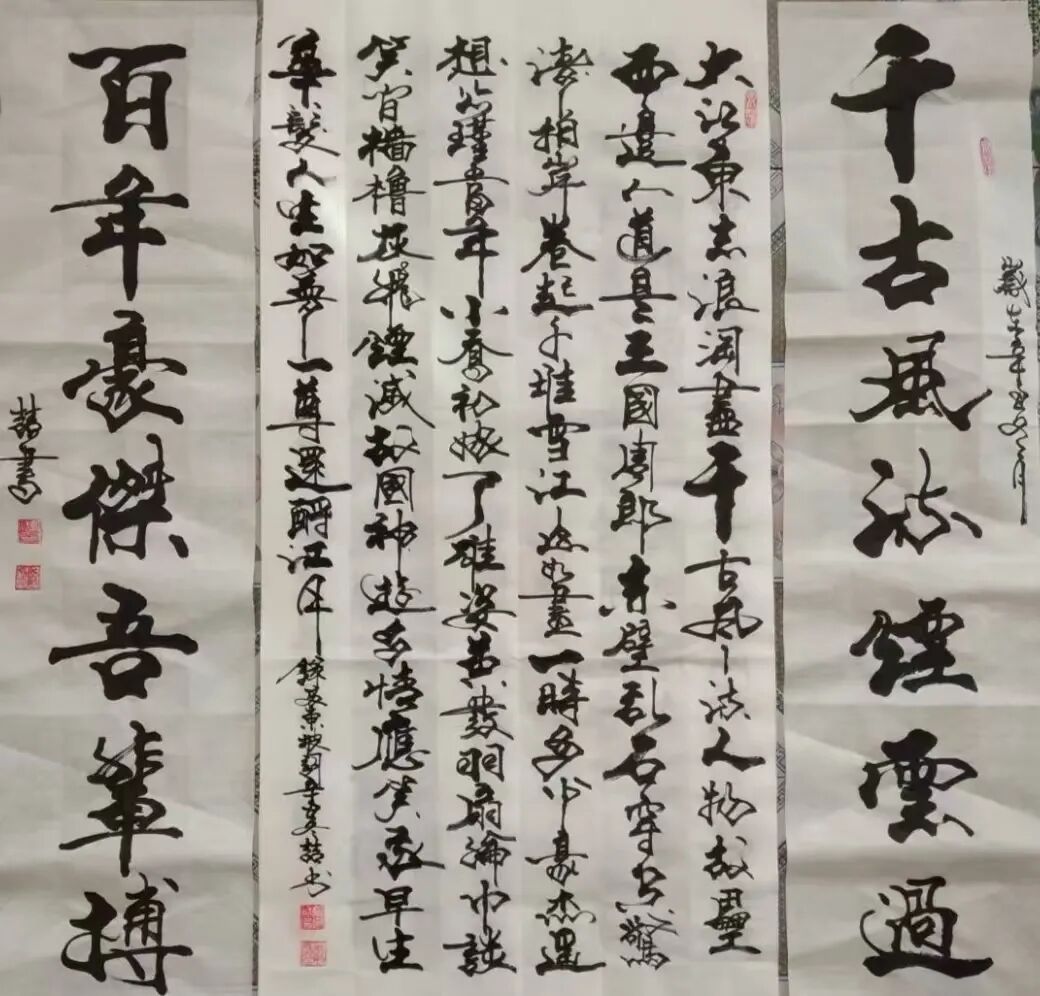 千古風流煙雲過
大江東去浪淘盡千古風流人物故壘
西邊人道是三國周郎赤壁亂石穿空驚
濤拍岸卷起千堆雪江山如畫一時多少豪杰遥
想公瑾當年小喬初嫁了雄姿英發羽扇綸巾談
笑間檣櫓灰飛煙滅故國神遊多情應笑我早生
華髮人生如夢一尊還酹江月
錄蘇東坡詞
百年豪傑吾輩搏